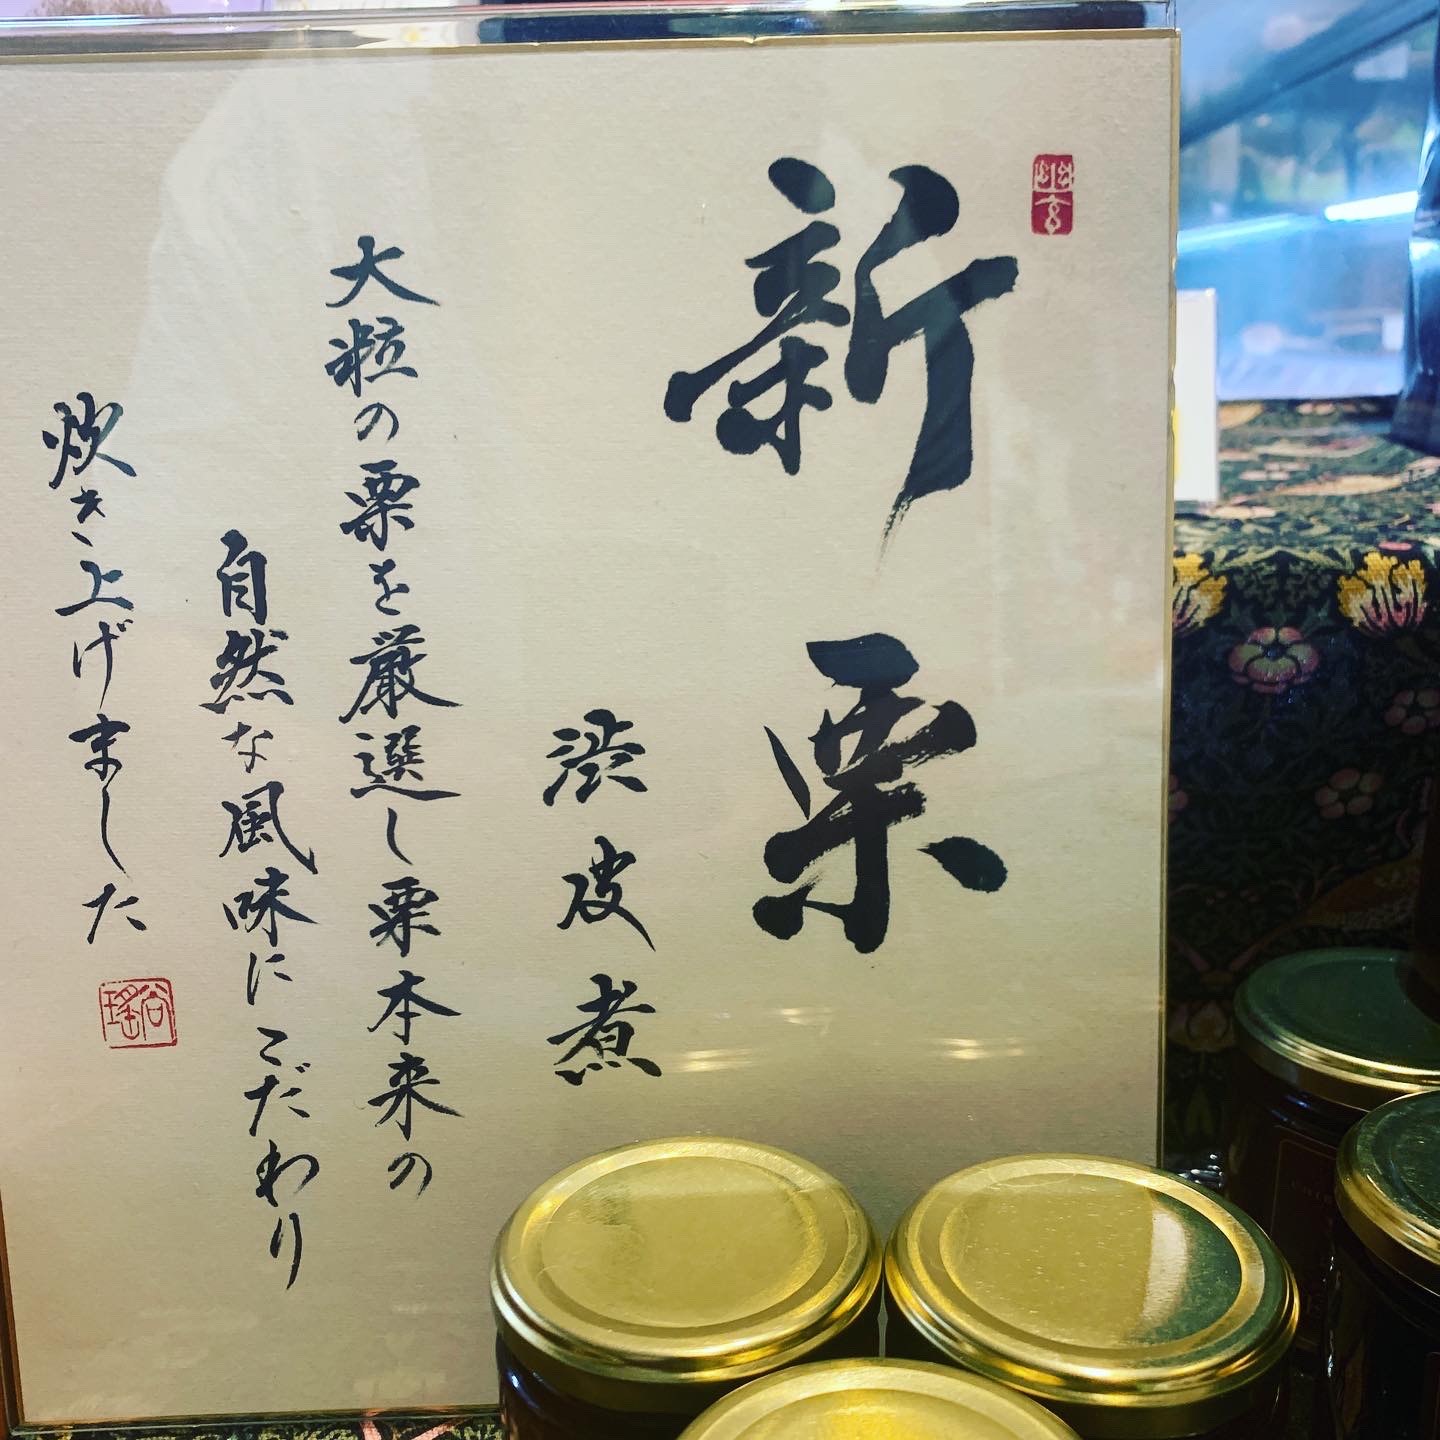 新栗
渋皮煮
大粒の栗を厳選し栗本来の
自然な風味にこだわり
炊き上げました